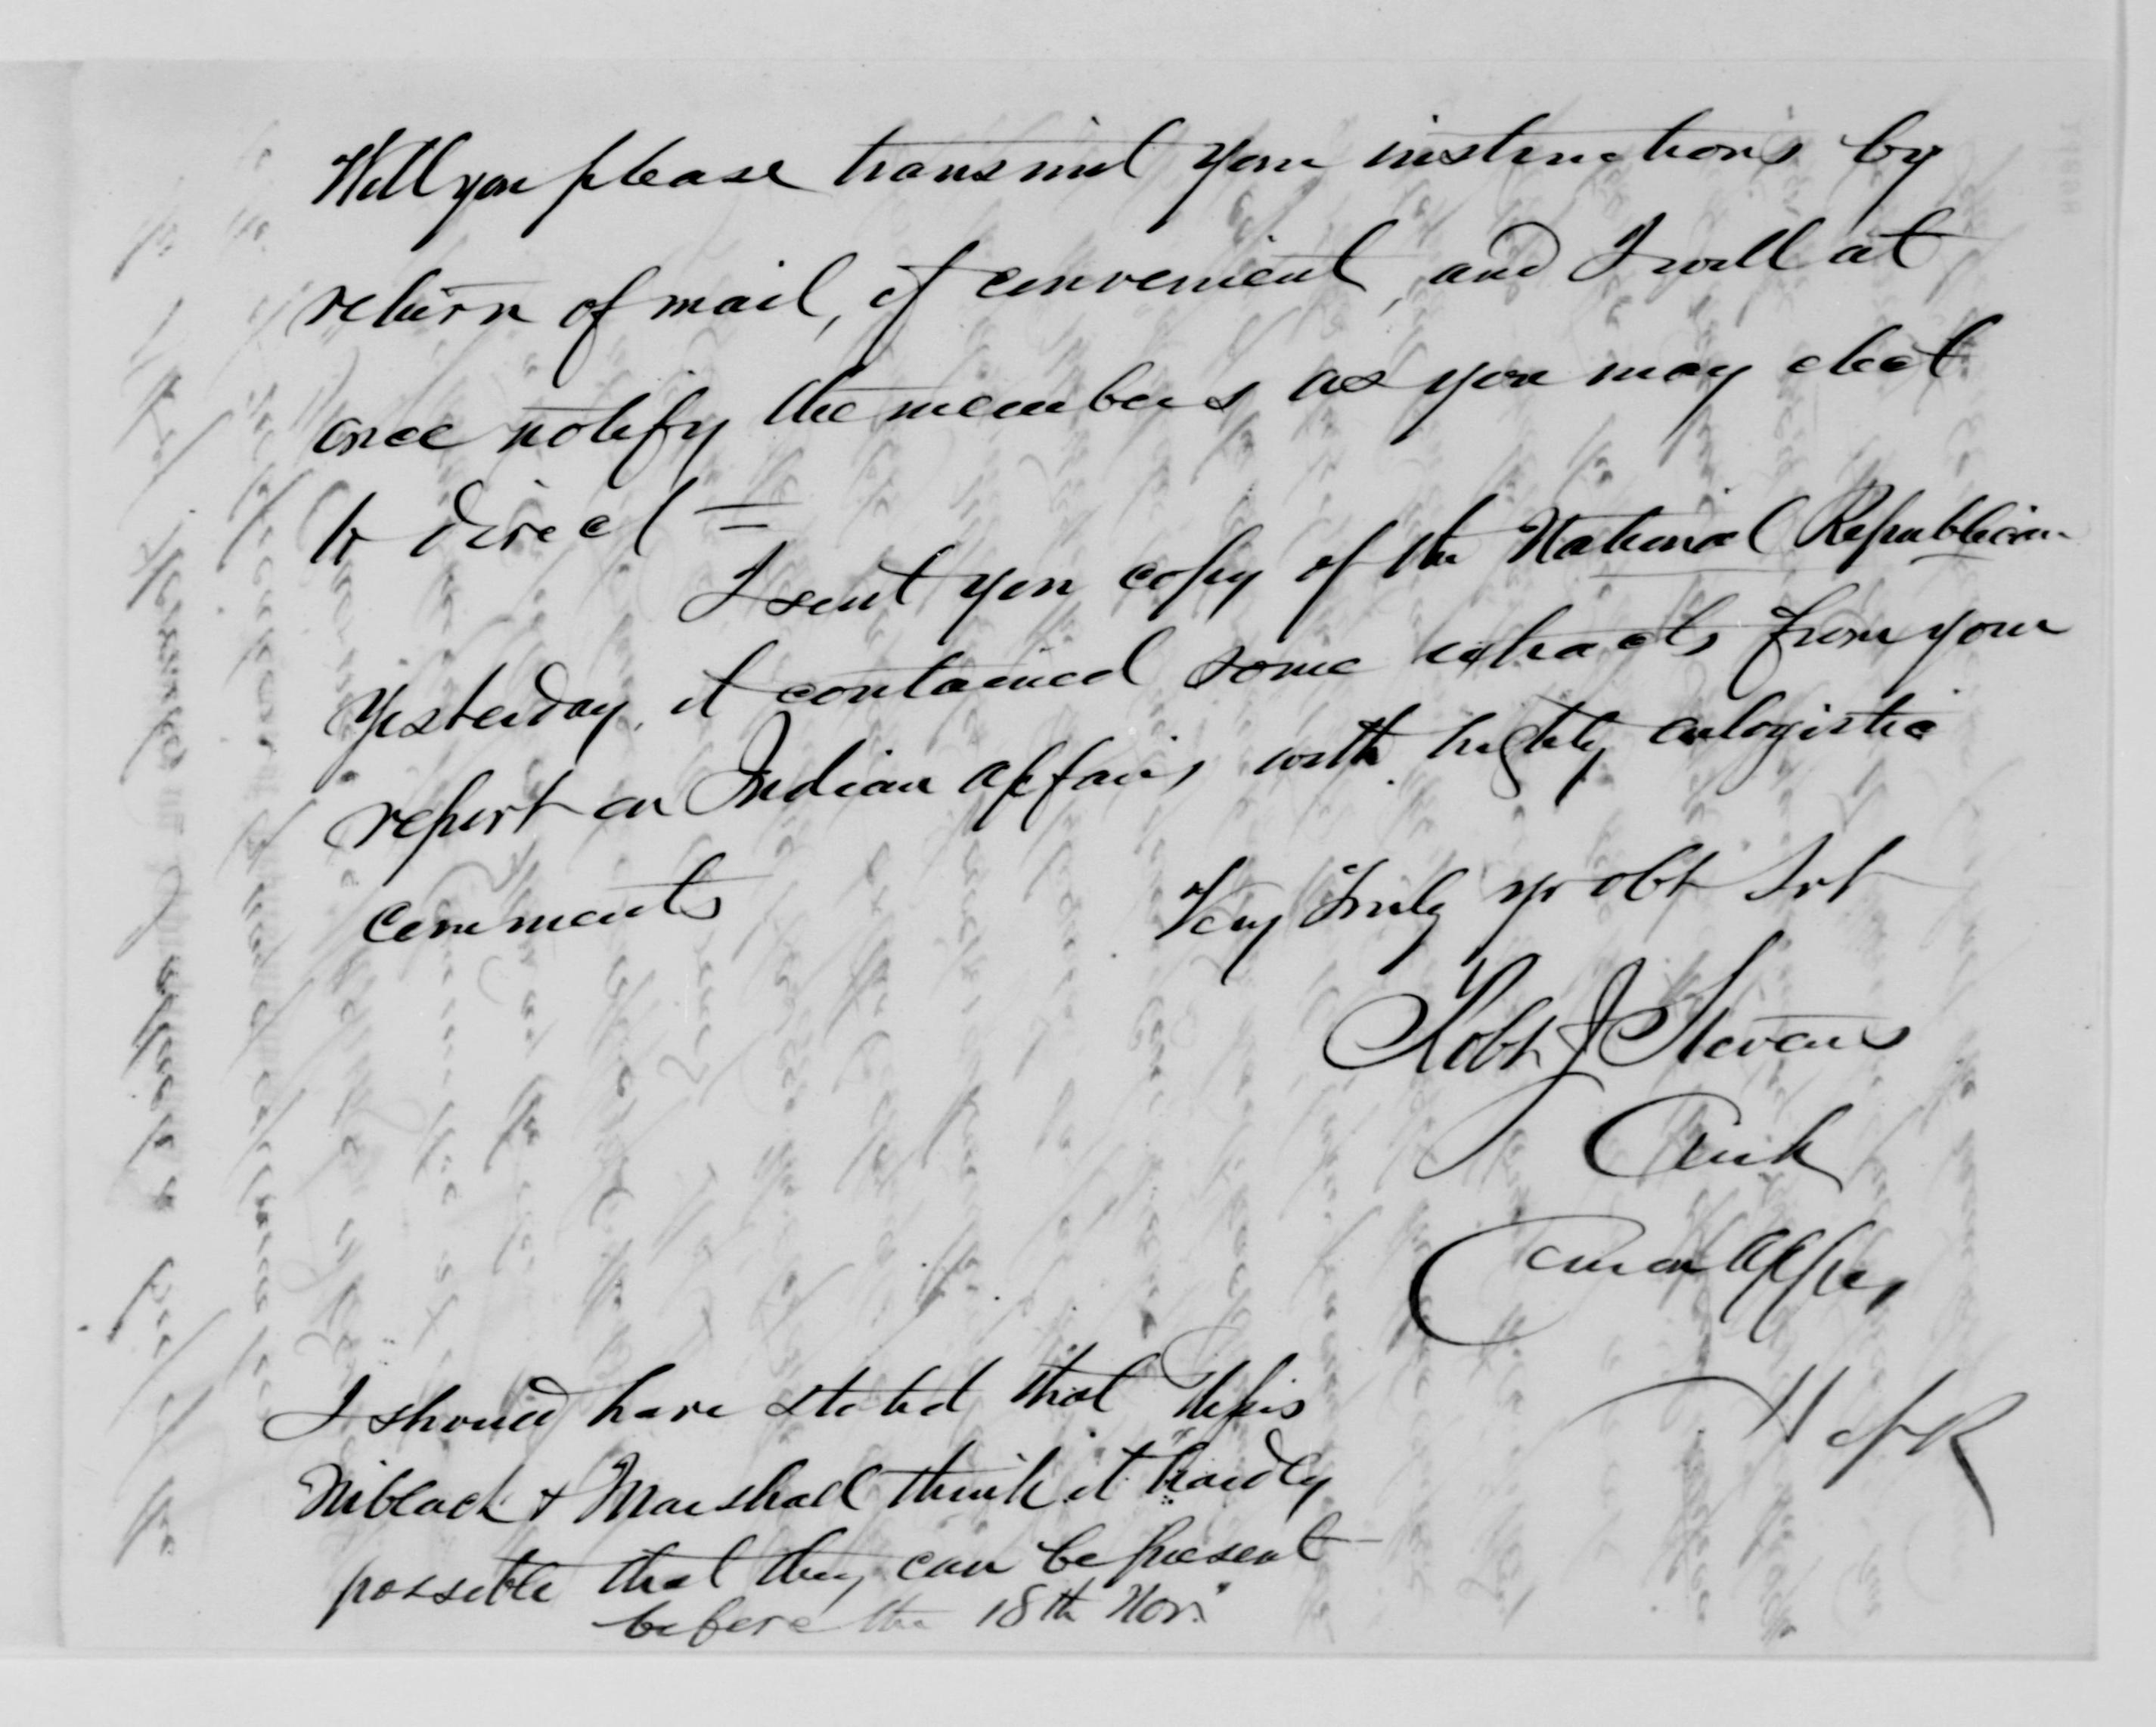 Will you please transmit your instructions by
return of mail, if convenient, and I will at
once notify the members as you may elect
to direct =
I sent you copy of the National Republican
yesterday, it contained some extracts from your
report on Indian affairs, with highly eulogistic
comments
Very Truly yr obt Svt
Robt J Stevens
Clerk
Com on Appns
H of R
I should have stated that Messrs
Niblack & Marshall think it hardly
possible that they can be present
before the 18th Nov."